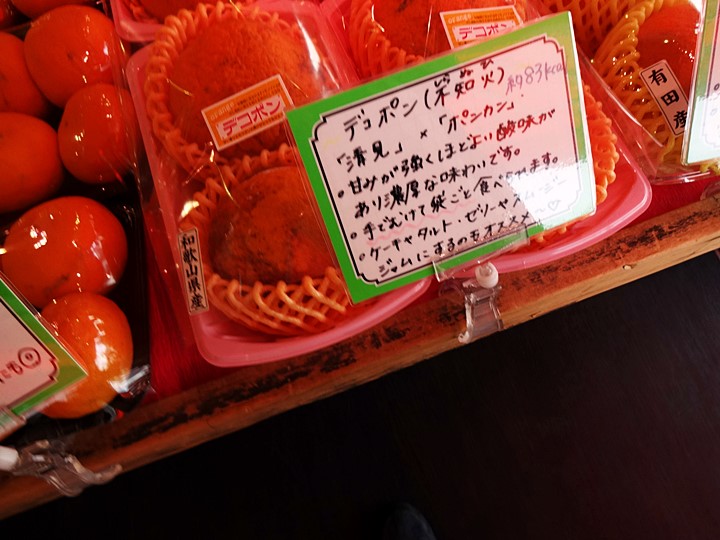 デコポン
デコポン
デコポン(不知火) 約83kcal
しらぬひ
「清見」×「ポンカン」
・甘みが強くほどよい酸味が
あり濃厚な味わいです。
・手でむけて袋ごと食べられます。
・ケーキやタルト・ゼリーやスムージー
ジャムにするのもオススメ〜♡
和歌山県産
有田産